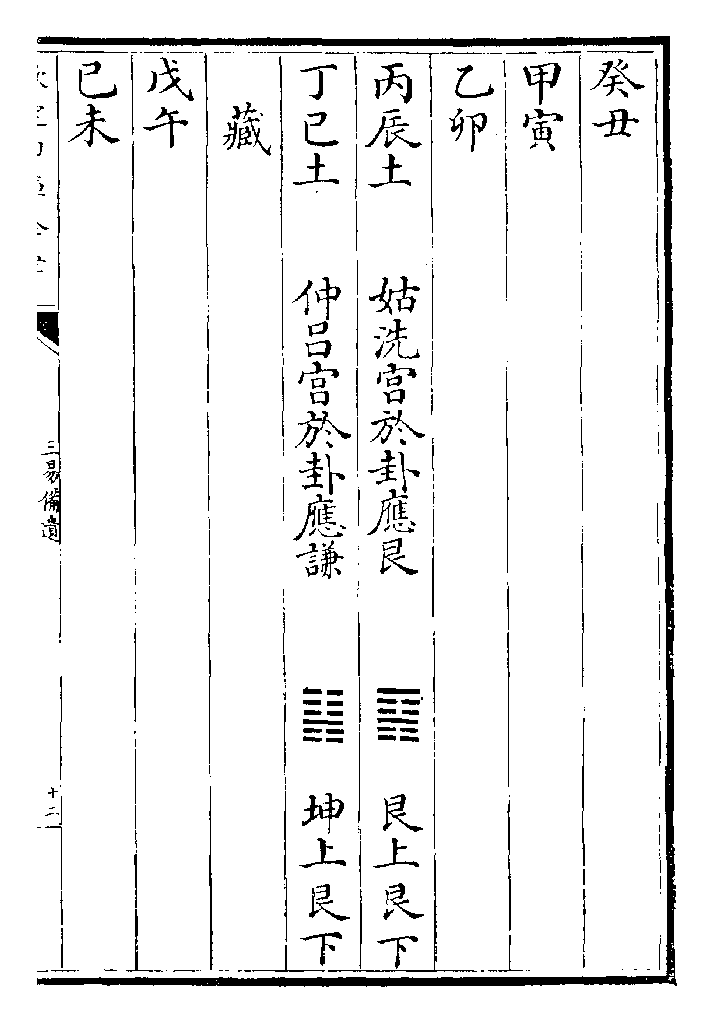 癸丑
甲寅
乙卯
丙辰土　姑洗宫於卦應艮　䷳　艮上艮下
丁巳土　仲吕宫於卦應謙　䷎　坤上艮下
藏
戊午
己未
三易備遺
十二